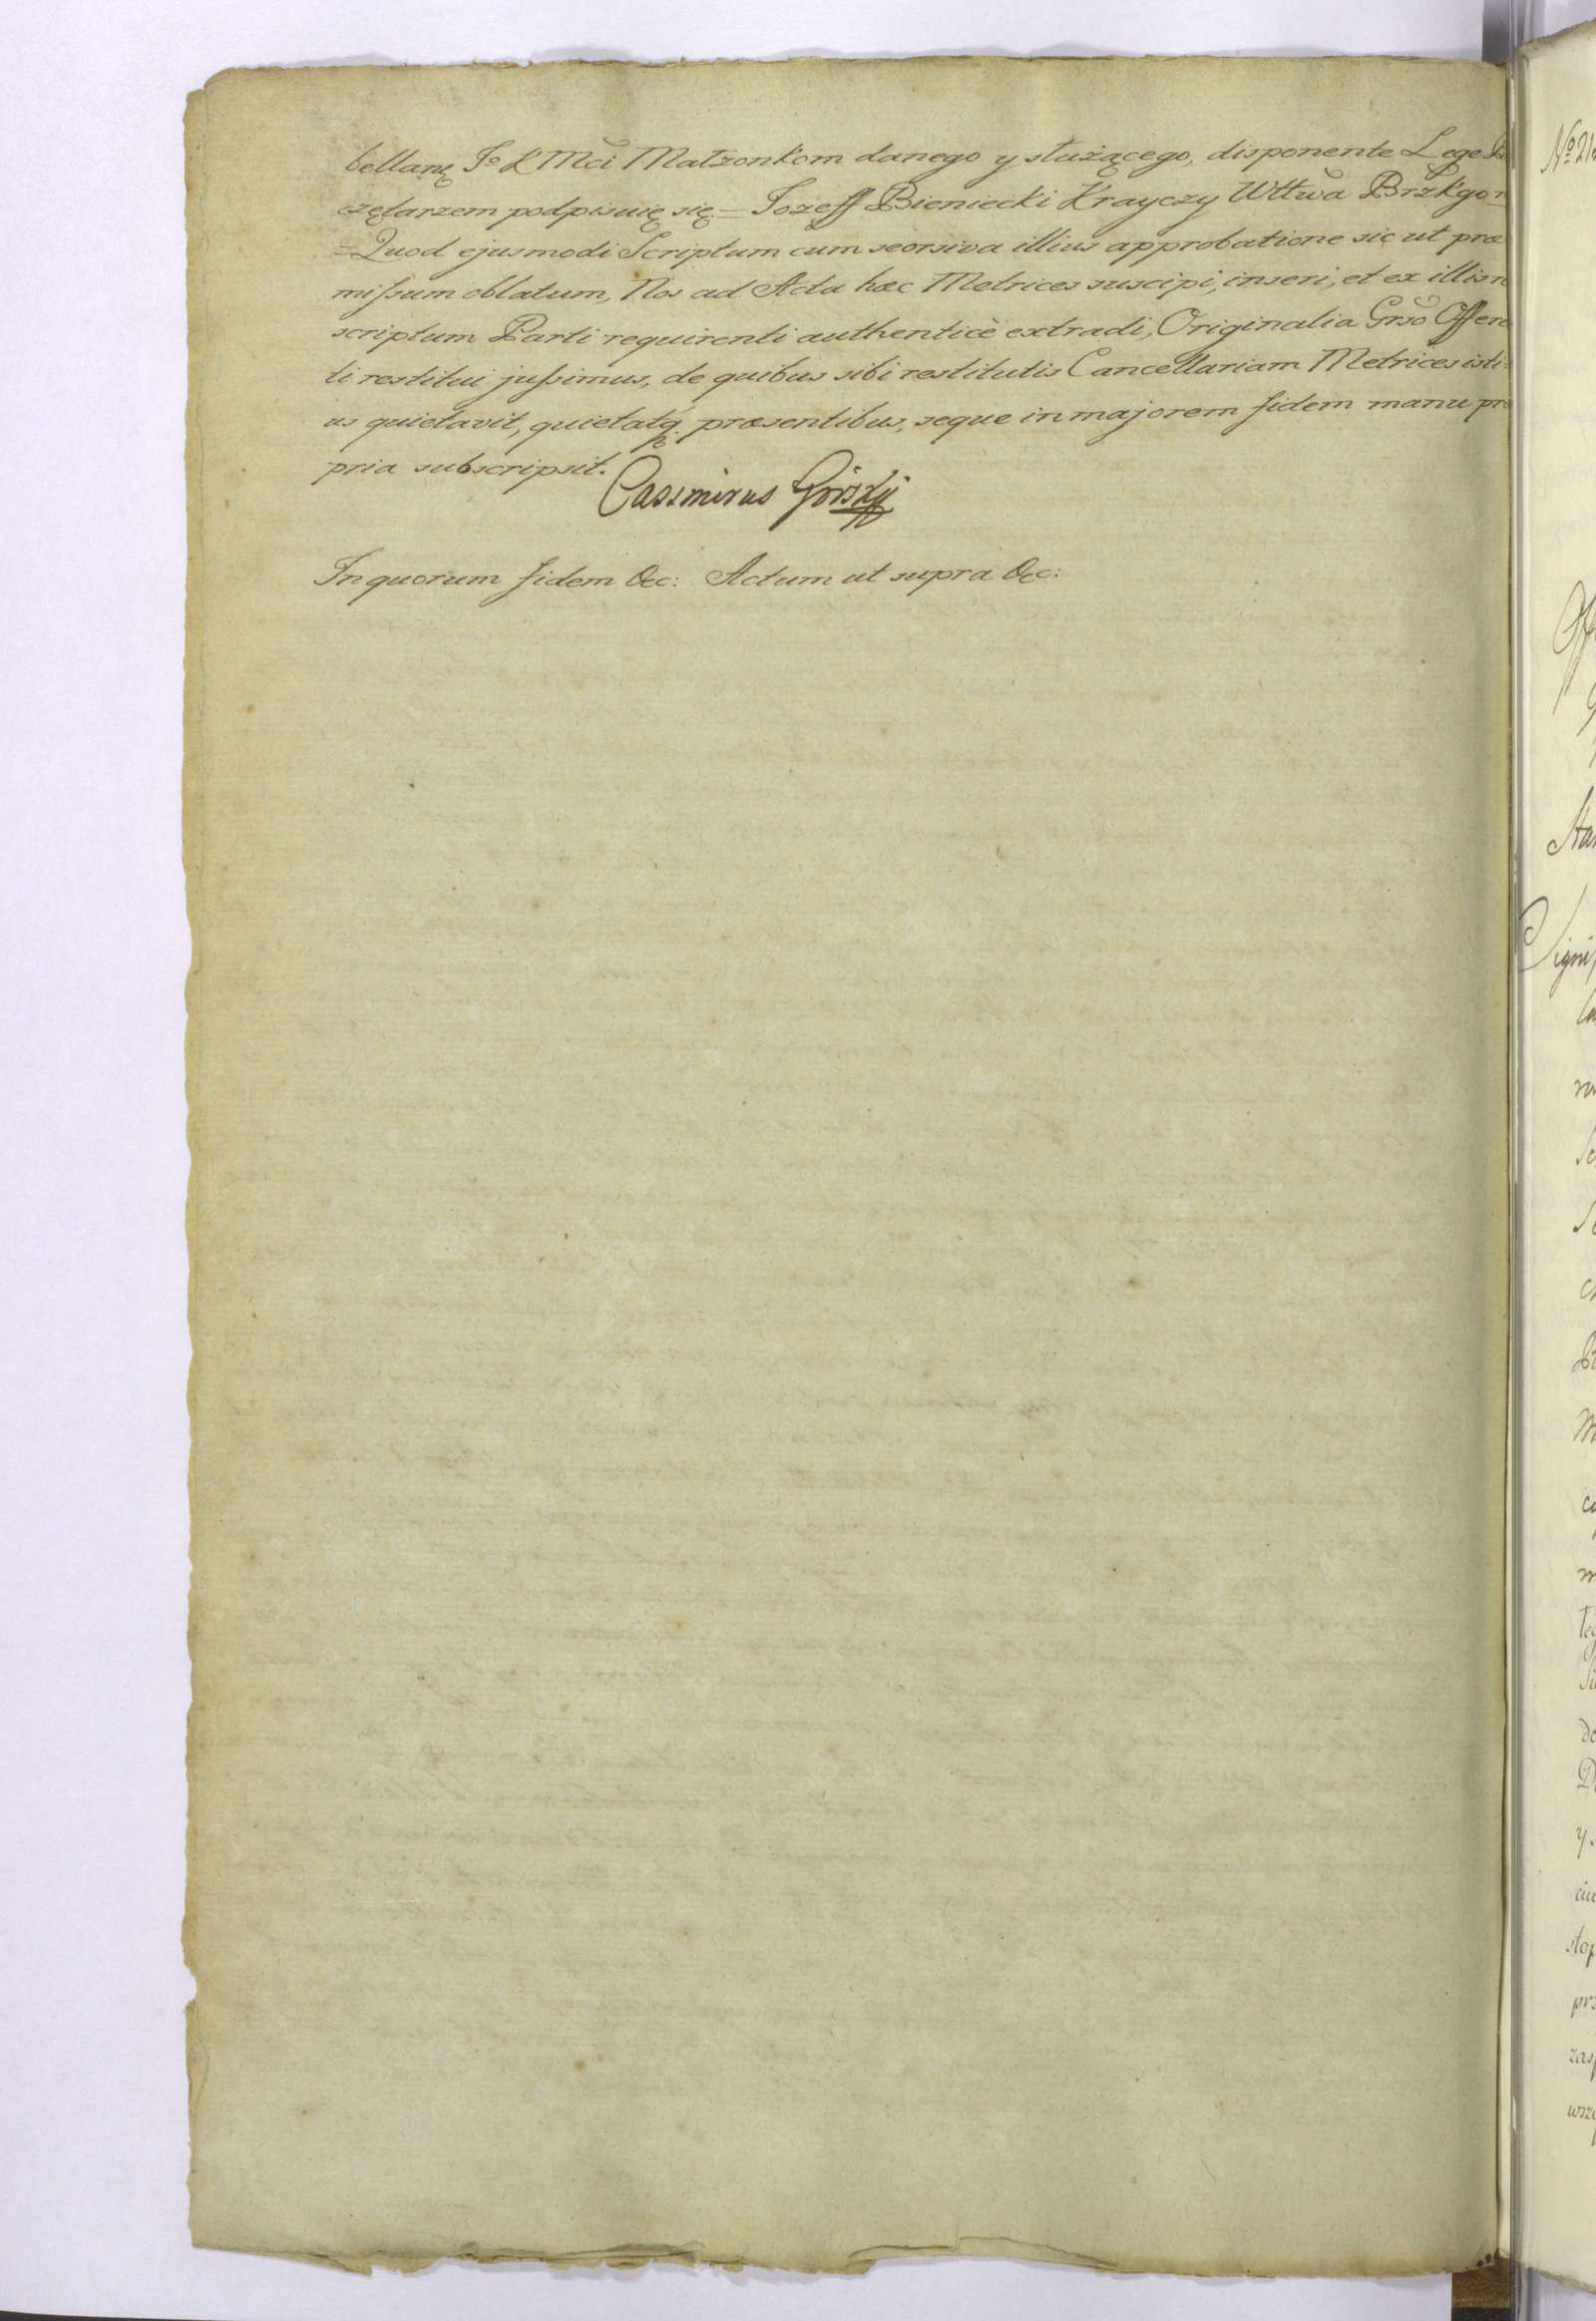 bellanę Jo K Mci Małżonkom danego y służącego, disponente Lege
czętarzem podpisuię się = Jozeff Bieniecki Krayczy Wttwa Brzkgo
= Quod ejusmodi Scriptum cum seorsiva illius approbatione sic ut præ
missum oblatum, Nos ad Acta hæc Metrices suscipi, inseri, et ex illis
scriptum Parti requirenti authenticè extradi, Originalia Grso Offeren
ti restitui jussimus, de quibus sibi restitutis Cancellariam Metrices isti=
us quietavit, quietatq. præsentibus, seque in majorem fidem manu pro
pria subscripsit.
Casimirus Górskÿ
In quorum fidem &c: Actum ut supra &c:
No 21